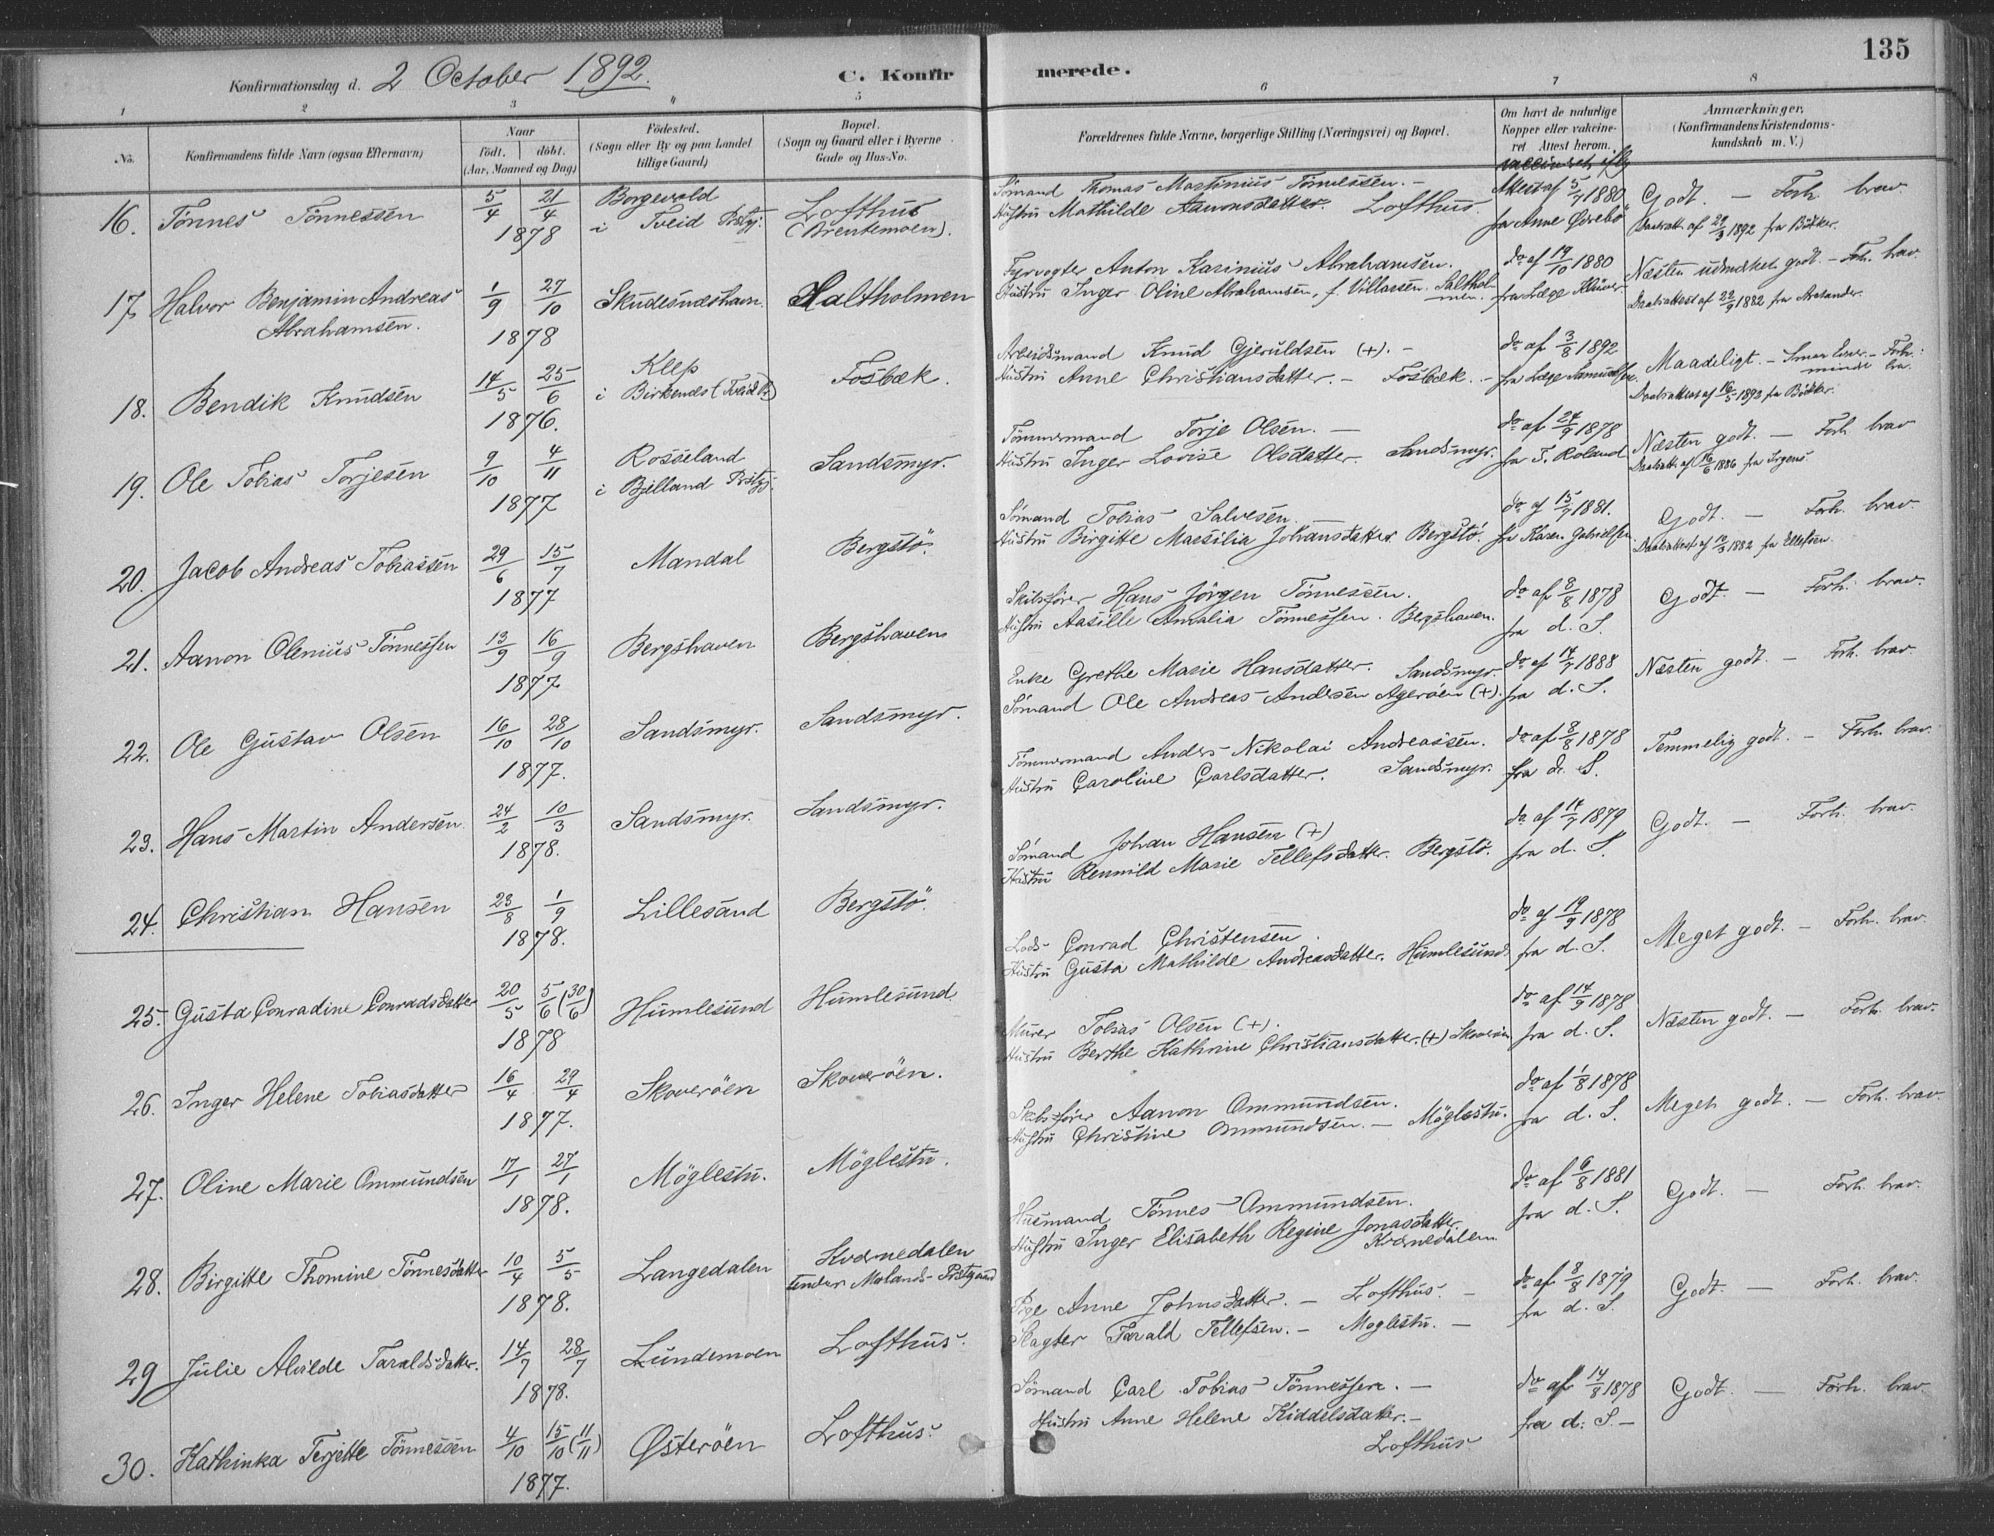 135
Konfirmationsdag d. 2 October 1892.
C. Konfirmerede.
1 2 3 4 5 6 7 8
No.
Konfirmandens fulde Navn (ogsaa Efternavn)
Naar
født. døbt.
(Aar, Maaned og Dag)
Fødested.
(Sogn eller By og paa Landet
tillige Gaard)
Bopæl.
(Sogn og Gaard eller i Byerne
Gade og Hus-No.
Forældrenes fulde Navne, borgerlige Stilling (Næringsvei) og Bopæl.
Om havt de naturlige
Kopper eller vakcine-
ret. Attest herom.
Anmærkninger.
(Konfirmandens Kristendoms-
kundskab m. V.)
16. Tönnes Tönnessen 5/4 21/4 1878
Borgevold
i Tveid Prstgj:
Lofthus
(Brentemoen).
Sömand Thomas Martinius Tönnessen. –
Hustru Mathilde Aanonsdatter. Lofthus.
vaccineret iflg
Attest af 5/7 1880
fra Anne Øvrebö
Godt. – Forh. brav.
Daabsatt. af 29/3 1892 fra Bödker.
17. Halvor Benjamin Andreas
Abrahamsen.
1/9 27/10 1878
Skudesnæshavn
Saltholmen
Fyrvogter Anton Karinius Abrahamsen.
Hustru Inger Oline Abrahamsen, f. Villarsen. Salthol-
men.
do af 19/10 1880
fra Læge Klüwer
Næsten udmærket godt – Forh. brav.
Daabsattest af 22/9 1882 fra
18. Bendik Knudsen 14/5 25/6 1876.
Klep
i Birkenes (Tveid Pr)
Fosbæk.
Arbeidsmand Knud Gjeruldsen (+). –
Hustru Anne Christiansdatter. – Fosbæk. –
do af 3/8 1892
fra Læge Samuelsen
Maadeligt. – – Forh.
bra.
Daabsattest af 16/5 1893 fra Bödker.
19. Ole Tobias Torjesen 9/10 4/11 1877
Rosseland
i Bjelland Prstgj.
Sandsmyr.
Tömmermand Torje Olsen. –
Hustru Inger Lovise Olsdatter. Sandsmyr.
do af 24/9 1878
fra T. Roland
Næsten godt. – Forh. brav
Daabsatt. af 16/6 1886 fra Irgens
20. Jacob Andreas Tobiassen 29/6 15/7 1877
Mandal
Bergstö.
Sömand Tobias Salvesen.
Hustru Birgitte Maesilia Johansdatter Bergstö.
do af 15/9 1881.
fra Karen Gabrielsen
Godt. – Forh. brav.
Daabsattest af 12/3 1882 fra Ellefsen.
21. Aanon Olenius Tönnessen 13/9 16/9 1877
Bergshaven
Bergshaven
Skibsförer Hans Jörgen Tönnessen.
Hustru Aasille Amalia Tönnessen. Bergshaven.
do af 8/8 1878
fra d. S.
Godt. – Forh. brav.
22. Ole Gustav Olsen 16/10 28/10 1877.
Sandsmyr.
Sandsmyr.
Enke Grethe Marie Hansdatter. Sandsmyr.
Sömand Ole Andreas Andersen Ageröen (+).
do af 14/7 1888
fra d. S.
Næsten godt. – Forh. brav.
23. Hans Martin Andersen 24/2 10/3 1878.
Sandsmyr.
Sandsmyr.
Tömmermand Anders Nikolai Andreassen.
Hustru Caroline Carlsdatter. Sandsmyr.
do af 8/8 1878
fra d. S.
Temmelig godt. – Forh. brav.
24. Christian Hansen 23/8 1/9 1878.
Lillesand
Bergstö.
Sömand Johan Hansen (+)
Hustru Rennild Marie Tellefsdatter. Bergstö.
do af 14/7 1879
fra d. S.
Godt. – Forh. brav.
25. Gusta Conradine Conradsdatter 20/5 5/6 (30/6) 1878
Humlesund
Humlesund
Lods Conrad Christensen.
Hustru Gusta Mathilde Andreasdatter. Humlesund.
do af 19/9 1878
fra d. S.
Meget godt. – Forh. brav.
26. Inger Helene Tobiasdatter 16/4 29/4 1877.
Skoveröen
Skoveröen.
Murer Tobias Olsen (+).
Hustru Berthe Kathrine Christiansdatter. (+) Skoveröen
do af 14/9 1878
fra d. S.
Næsten godt. – Forh. brav.
27. Oline Marie Ommundsen 17/1 27/1 1878.
Möglestu.
Möglestu.
Skibsförer Aanon Ommundsen.
Hustru Christine Ommundsen. – Möglestu.
do af 1/8 1878
fra d. S.
Meget godt. – Forh. brav
28. Birgitte Thomine Tönnesdatter 10/4 5/5 1878.
Langedalen
Kvernedalen
under Molands Prstgaard
Husmand Tönnes Ommundsen.
Hustru Inger Elisabeth Regine Jonasdatter.
Kvernedalen
do af 6/8 1881
fra d. S.
Godt. – Forh. brav.
29 Julie Alvilde Taraldsdatter. 14/7 28/7 1878.
Lundemoen
Lofthus.
Pige Anne Johnsdatter. – Lofthus. –
Slagter Tarald Tellefsen. – Moglestu. –
do af 8/8 1879
fra d. S.
Godt. – Forh. brav.
30. Kathinka Terjette Tönnessen 4/10 15/10 (11/11) 1877.
Østeröen
Lofthus.
Sömand Carl Tobias Tönnessen. –
Hustru Anne Helene Kiddelsdatter. –
Lofthus
do af 14/8 1878
fra d. S. –
Godt. – Forh. brav.